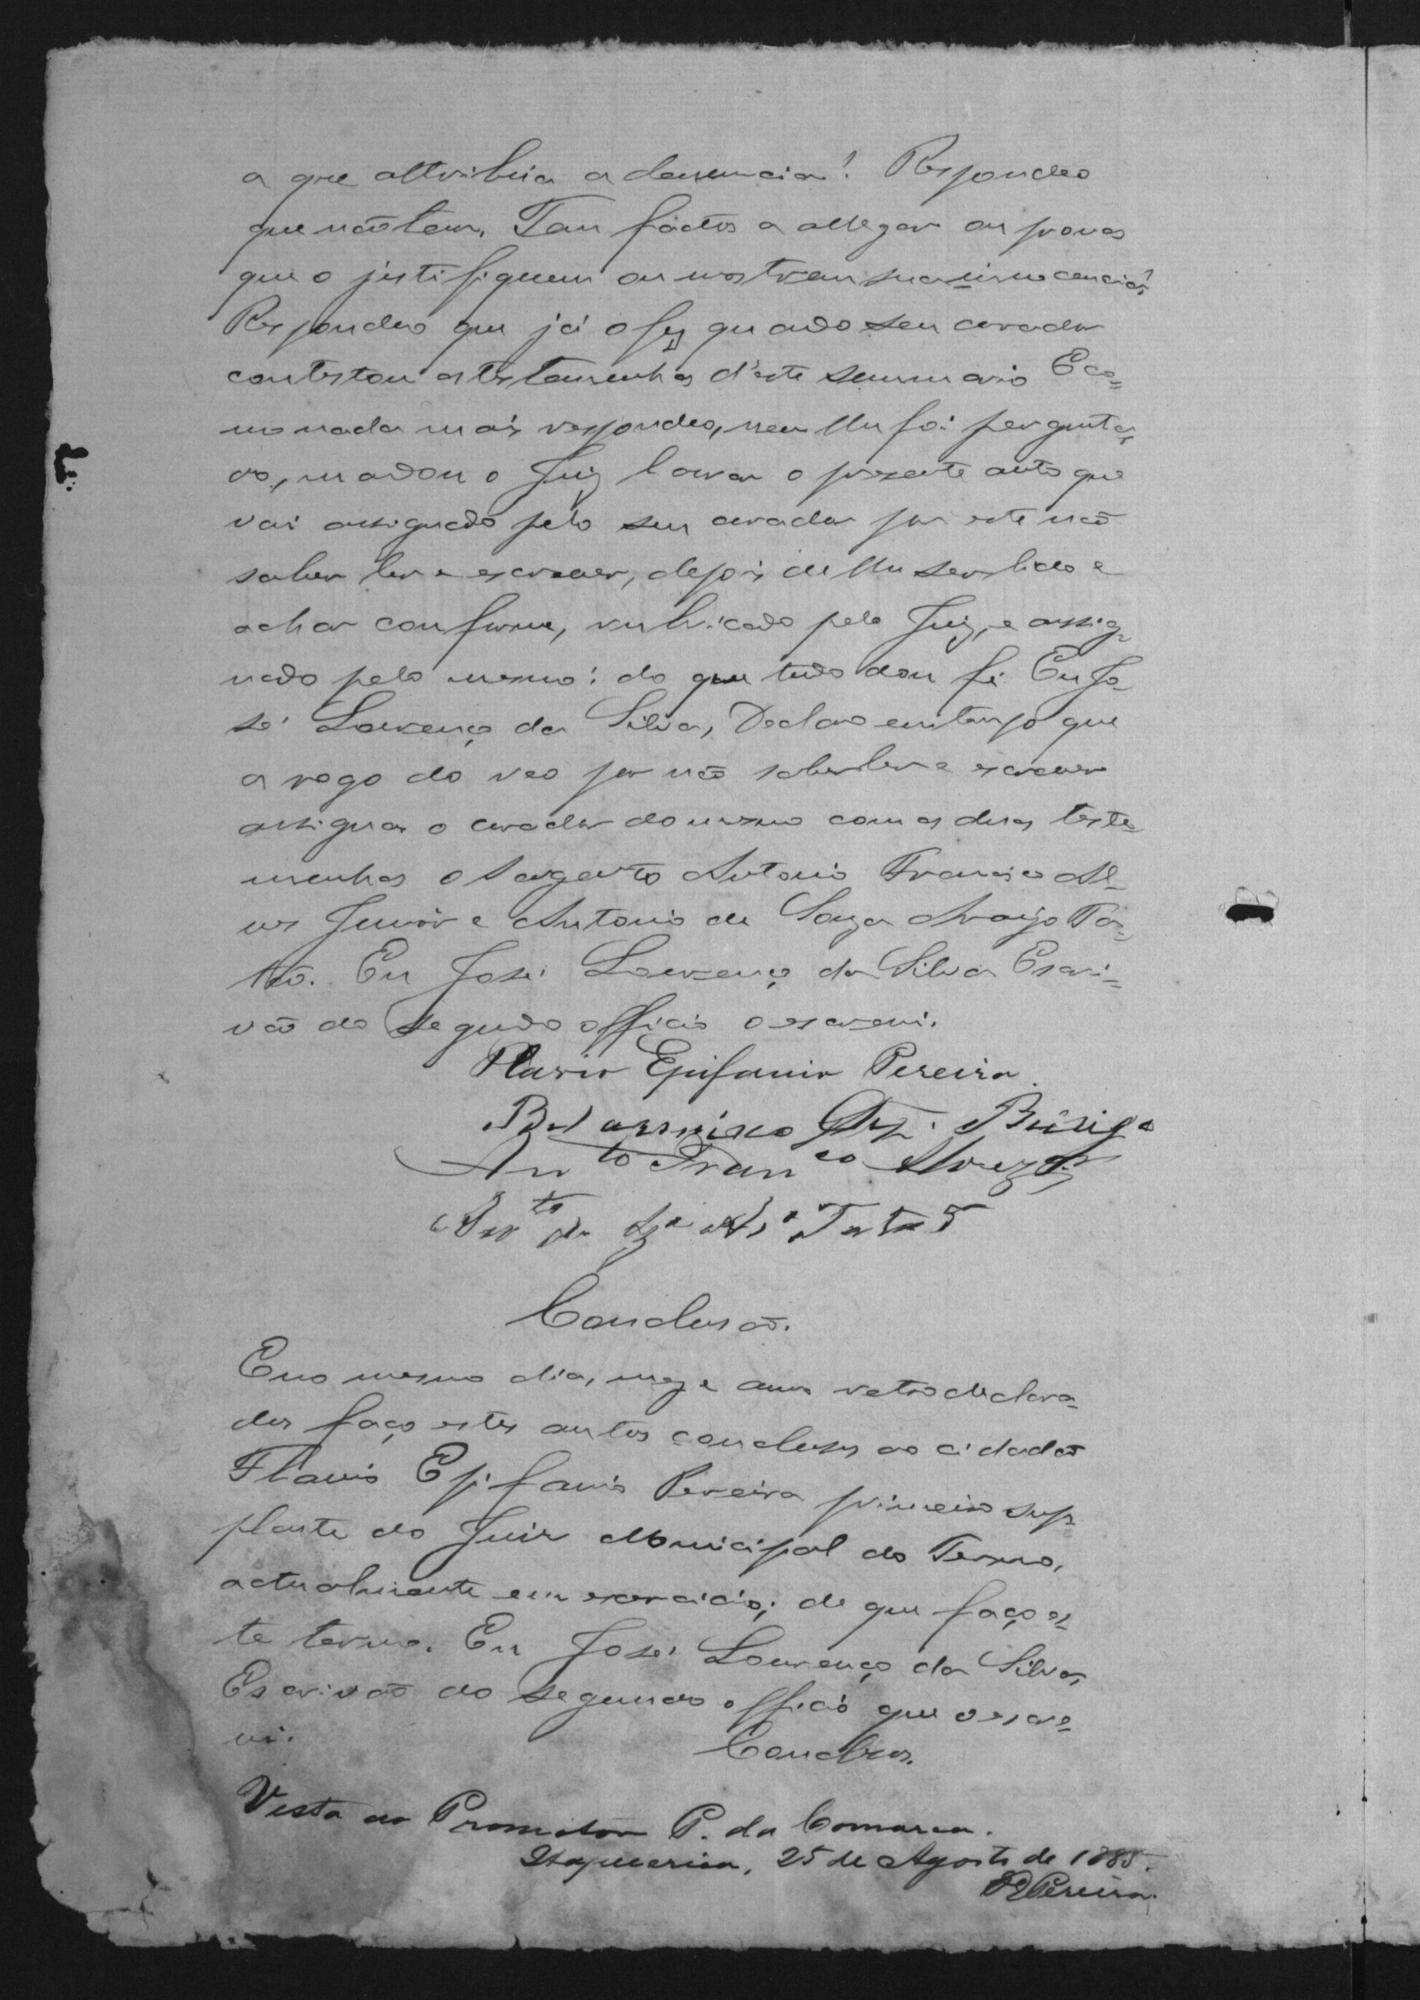 a que attribuia a denuncia? Respondeo
que não tem. Tem factos a allegar ou provas
que o justifiquem ou mostrem sua innocencia?
Respondeo que já o fez quando seu curador
contestou as testemunhas d'este summario E co=
mo nada mais respondeo, nem lhe foi pergunta=
do, mandou o Juiz lavrar o presente auto que
vai assignado pelo seu curador por este não
saber ler e escrever, depois de lhe ser lido e
achar conforme, rubricado pelo Juiz, e assig=
nado pelo mesmo: do que tudo dou fé. Eu Jo=
sé Lourenço da Silva, Declaro em tempo que
a rogo do reo por não saber ler e escrever
assigna o curador do mesmo com as duas teste=
munhas o Sargento Antonio Francisco Al=
ves Junior e Antonio de Souza Araujo Ta=
tão. Eu José Lourenço da Silva Escri=
vão do segundo officio o escrevi.
Flavio Epifanio Pereira
Belarmino
Anto Franco Alvez Jr
Anto de Sza Aro
Conclusão.
E no mesmo dia, mez e anno retro declara=
dos faço estes autos conclusos ao cidadão
Flavio Epifanio Pereira primeiro sup=
plente do Juiz Municipal do Termo,
actualmente em exercicio; de que faço es=
te termo. Eu José Lourenço da Silva,
Escrivão do segundo officio que o escre=
vi.
Conclusos.
Vista ao Promotor P. da Comarca.
Itapecerica, 25 de Agosto de 1885.
Pereira.